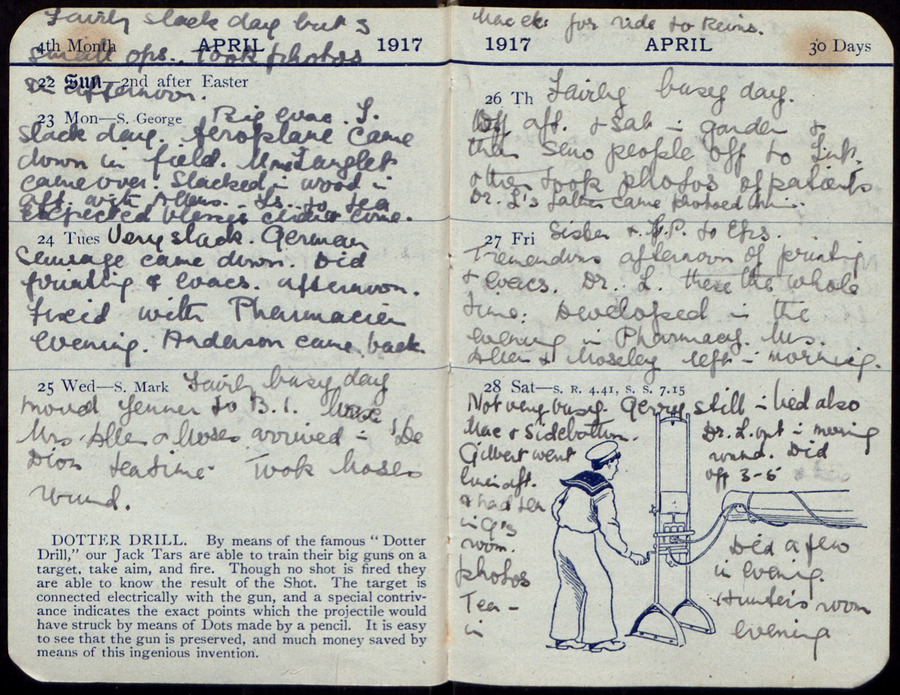 Fairly slack day but 3
4th Month APRIL 1917
small ops.. took photos
22 Sun—2nd after Easter
in afternoon.
23 Mon—S. George Big evac. I.
slack day. Aeroplane came
down in field.
came over. Slacked in wood in
aft. with to tea
expected came.
24 Tues Very slack. German
Sausage came down. Did
printing & evacs. afternoon.
Fixed with Pharmacien
evening. Anderson came back.
25 Wed—S. Mark Fairly busy day
moved Jenner to B.1.
Mrs Allen & Moses arrived - De
Dion teatime. Took Moses
round.
DOTTER DRILL. By means of the famous “ Dotter
Drill,” our Jack Tars are able to train their big guns on a
target, take aim, and fire. Though no shot is fired they
are able to know the result of the Shot. The target is
connected electrically with the gun, and a special contriv-
ance indicates the exact points which the projectile would
have struck by means of Dots made by a pencil. It is easy
to see that the gun is preserved, and much money saved by
means of this ingenious invention.
for ride to Reims.
1917 APRIL 30 Days
26 Th Fairly busy day.
Off aft. & sat in garden &
then people off to
then took photos of patients
Dr. L's came
27 Fri Sister & to
Tremendous afternoon of printing
& evacs. Dr. L. there the whole
time. Developed in the
evening in Pharmacy. Mrs.
Allen & Moseley left in morning.
28 Sat—S. R. 4.41, S. S. 7.15
Not very busy. Gerry still in bed also
Mac & Sidebottom. Dr. L. out in morning
Gilbert went round. Did
aft. off 3-5
& had tea
in G's
room. Did a few
photos in evening.
Tea - Hunter's room
in evening